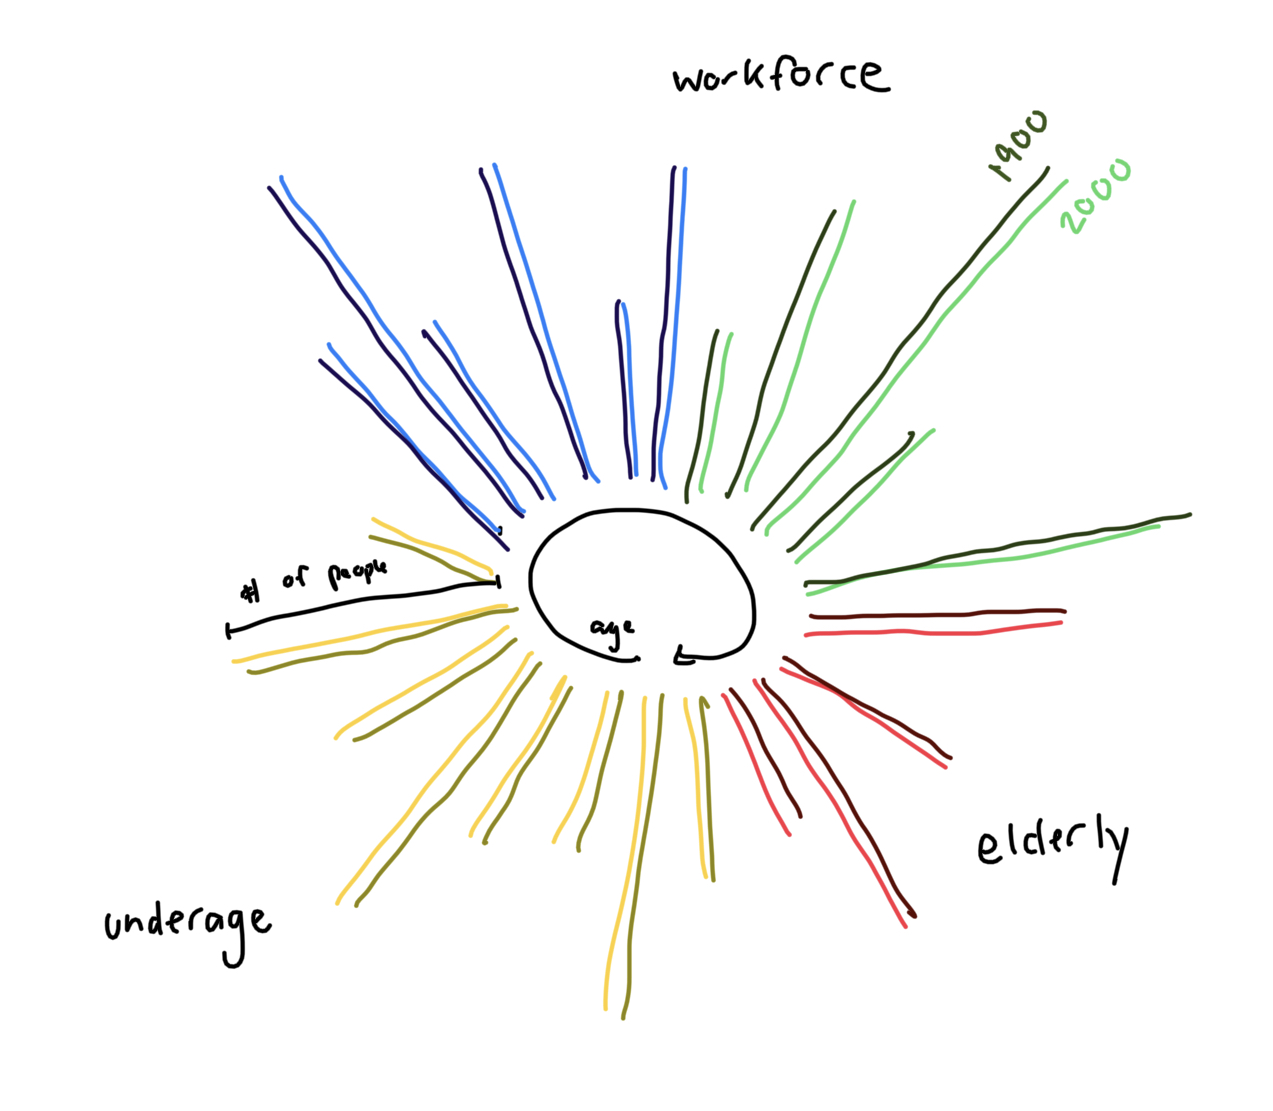 workforce
1900
2000
# of people
age
elderly
underage